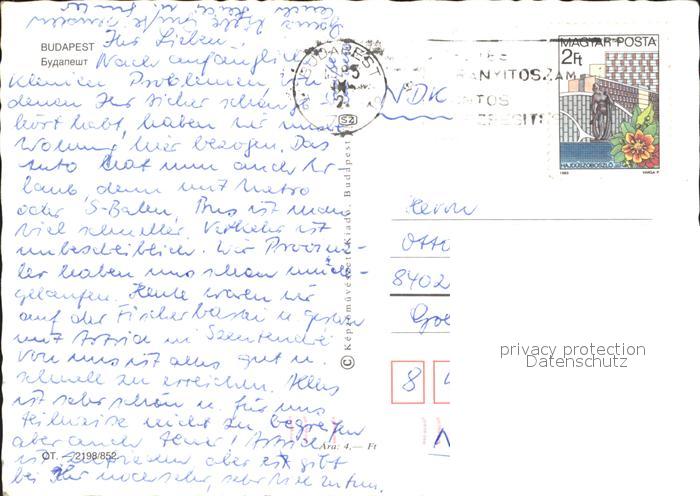 BUDAPEST
Будапешт
Ihr Lieben!
Nach anfänglich
kleinen Problemen, von
denen Ihr sicher schon ge-
hört habt, haben wir unsere
Wohnung hier bezogen. Das
Auto hat nun auch Ur-
laub denn mit Metro
oder S-Bahn, Bus ist man
viel schneller. Verkehr ist
unbeschreiblich. Wir Provinz-
ler haben uns schon müde-
gelaufen. Heute waren wir
auf der Fischerbastei u. gestern
mit Astrid in Szentendre
von uns ist alles gut u.
schnell zu erreichen. Alles
ist sehr schön u. für uns
teilweise nicht zu begreifen
aber auch teuer! Astrid
ist zufrieden aber es gibt
bei Ihr noch sehr, sehr viel zu tun.
OT. – 2198/852
Ára: 4,— Ft
© Képzőművészeti Kiadó, Budapest
BUDAPEST
52
MAGYAR POSTA
2Ft
HAJDÚSZOBOSZLÓ
1983
VARGA P.
NDK
Herrn
Otto
8402
8
privacy protection
Datenschutz